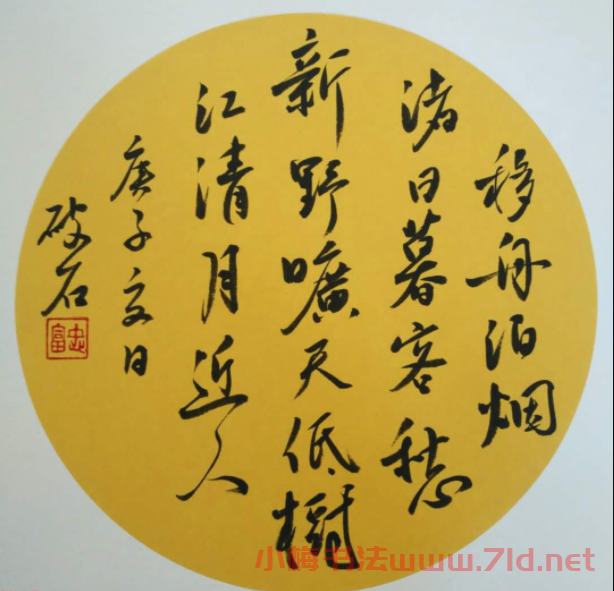 移舟泊烟
渚日暮客愁
新野曠天低樹
江清月近人
庚子夏日
破石
忠富
小梅书法www.7ld.net